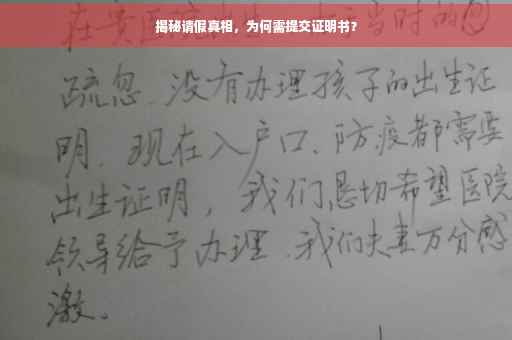 揭秘请假真相，为何需提交证明书？
在贵医 当时的
疏忽.没有办理孩子的出生证
明.现在入户口、防疫都需要
出生证明，我们恳切希望医院
领导给予办理.我们夫妻万分感
激。